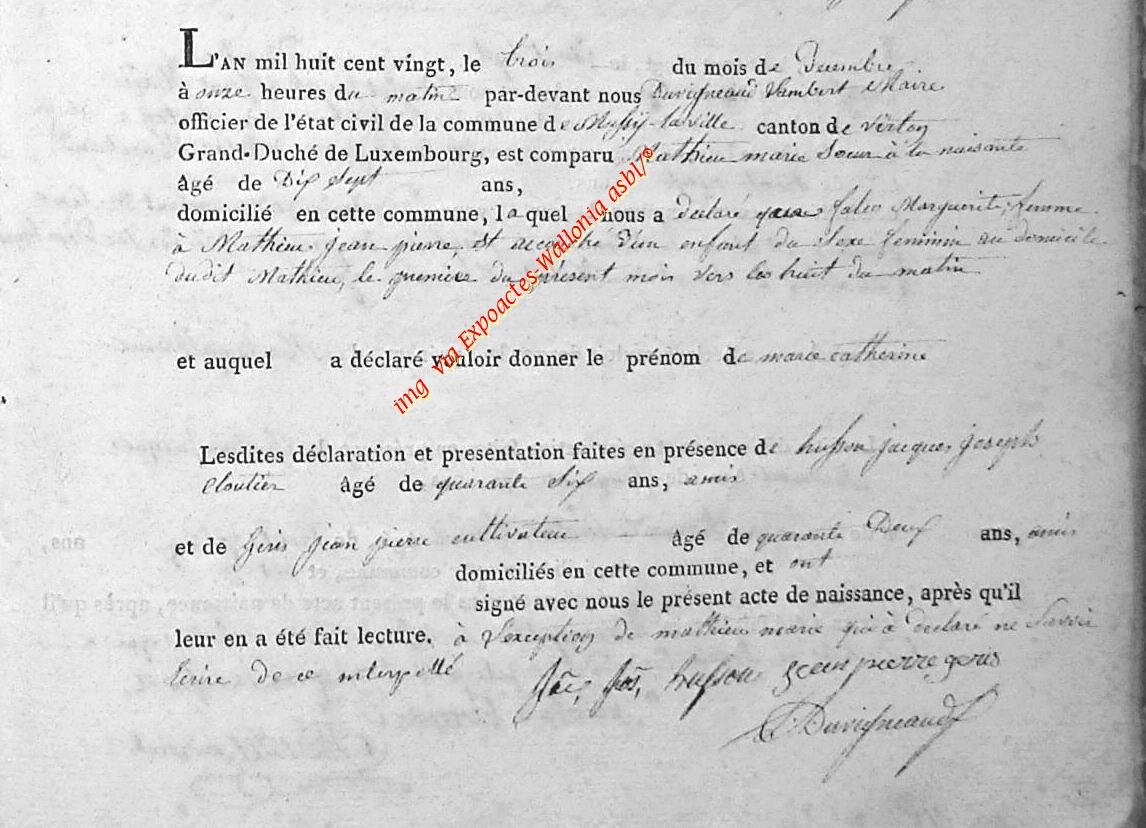 L'AN mil huit cent vingt, le trois du mois de Decembre
à onze heures du matin par-devant nous Duvigneaud Lambert Maire
officier de l'état civil de la commune de Mussy-laville canton de virton
Grand-Duché de Luxembourg, est comparu Mathieu marie Soeur à la naisante
âgé de Dix Sept ans,
domicilié en cette commune, laquel nous a declaré Marguerit, femme
à Mathieu jean pierre est accouché d'un enfant du Sexe feminin au domicile
dudit Mathieu, le premiere du présent mois vers les huit du matin
et auquel a déclaré vouloir donner le prénom de marie catherine
Lesdites déclaration et presentation faites en présence de husson jacques joseph
Cloutier âgé de quarante Six ans, amis
et de Geris jean pierre cultivateur âgé de quarante Deux ans, amis
domiciliés en cette commune, et ont
signé avec nous le présent acte de naissance, après qu'il
leur en a été fait lecture. à l'exception de mathieu marie qui à declaré ne Savoir
Ecrire de ce interpellé
husson jean pierre geris
Duvigneaud
img via Expoactes-Wallonia asbl/®